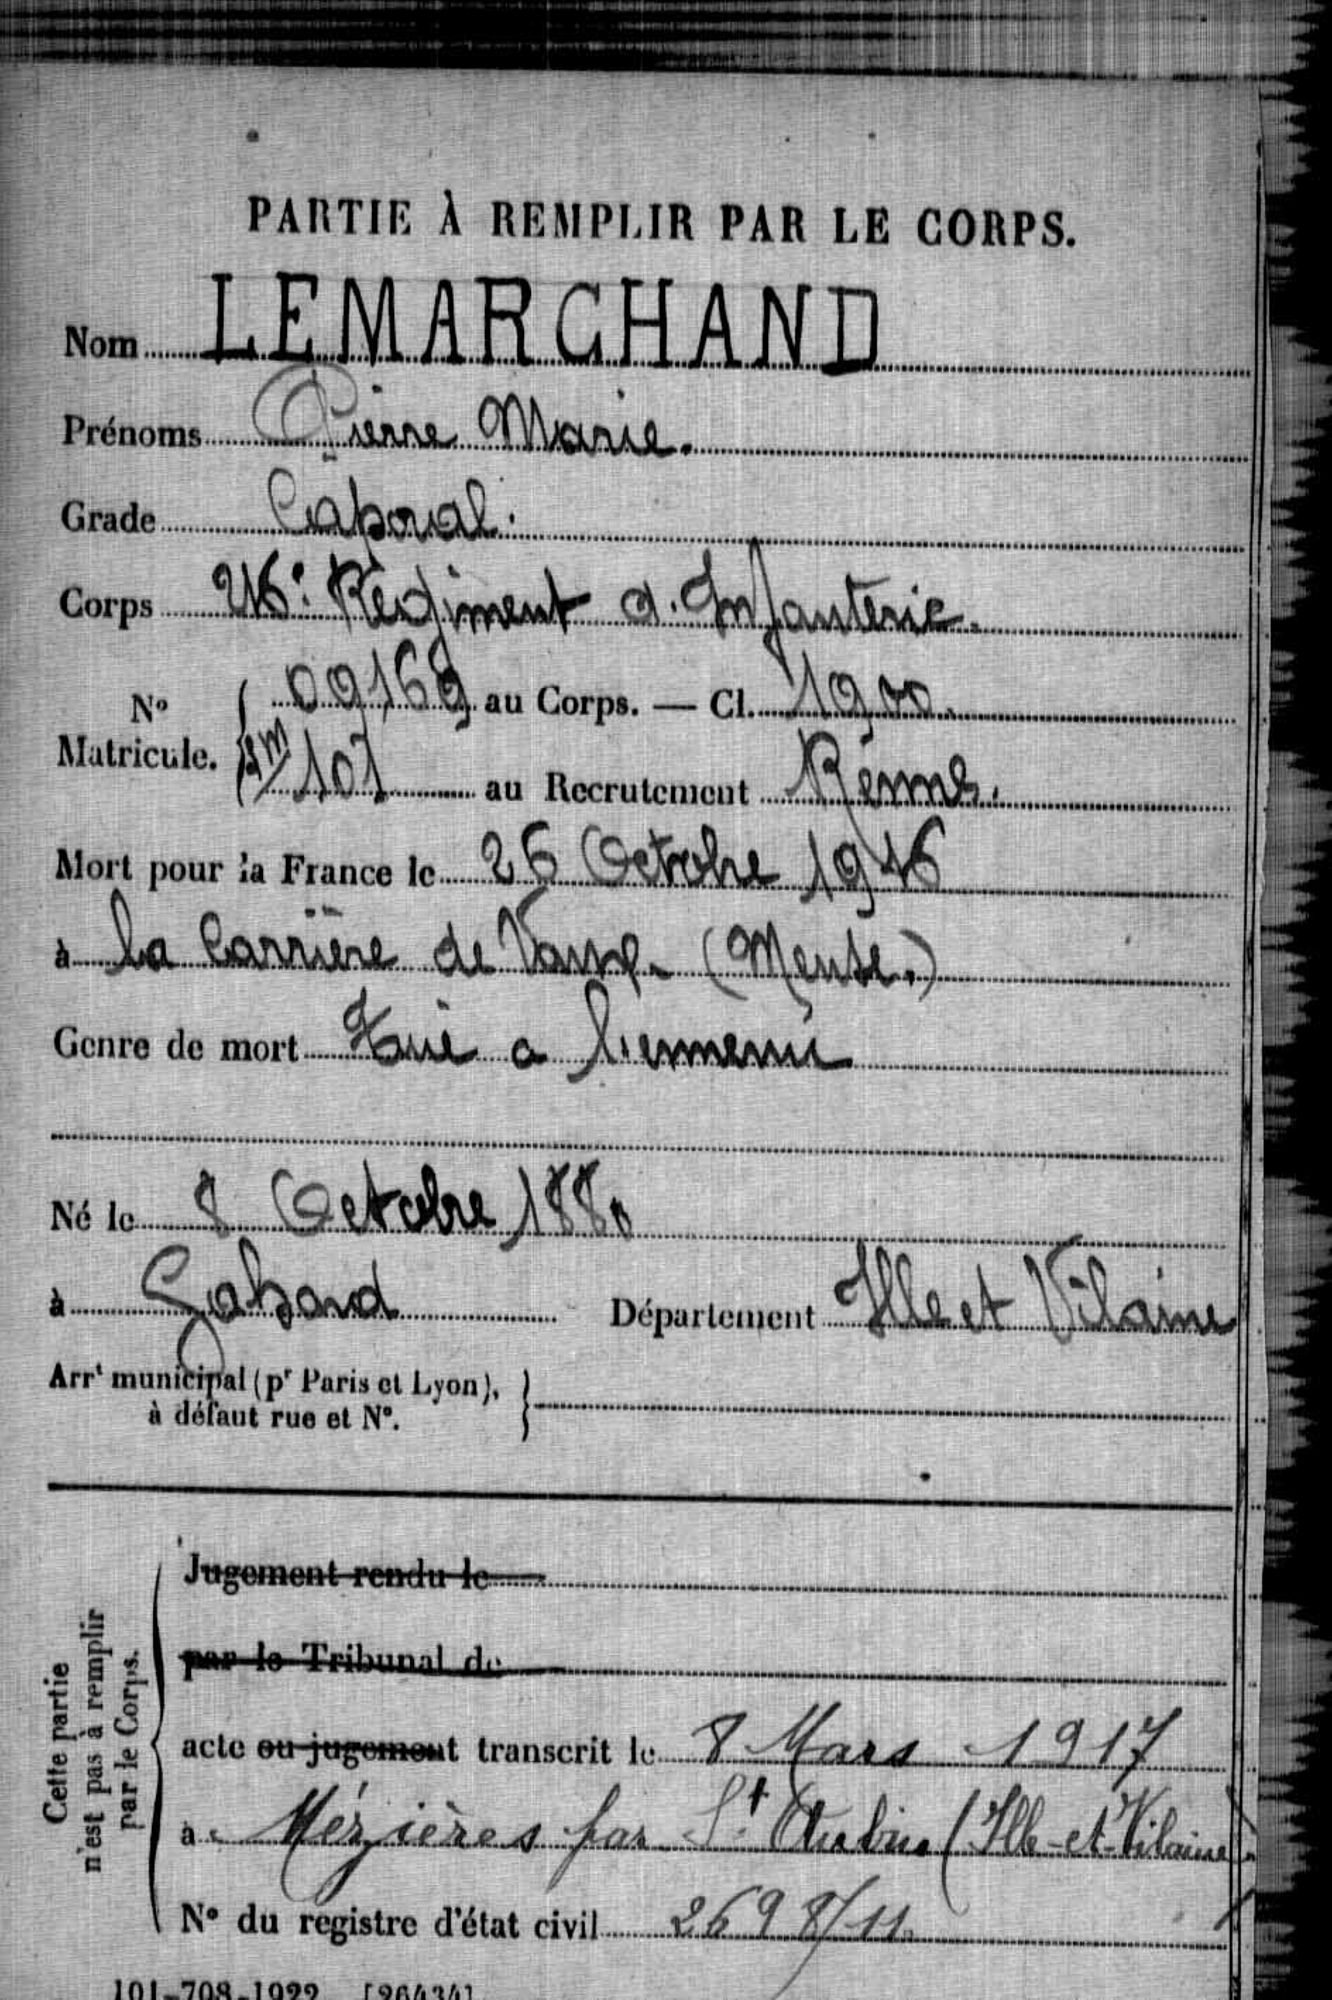 PARTIE À REMPLIR PAR LE CORPS.
Nom LEMARCHAND
Prénoms Pierre Marie.
Grade Caporal.
Corps 216e Régiment d'Infanterie.
N° Matricule. { 09169 au Corps. — Cl. 1900.
107 au Recrutement Rennes.
Mort pour la France le 26 Octobre 1916
à la Carrière de Vaux - (Meuse.)
Genre de mort Tué a l'ennemi
Né le 8 Octobre 1880
à Gahard Département Ille et Vilaine
Arrt municipal (pr Paris et Lyon),
à défaut rue et N°. }
Cette partie
n'est pas à remplir
par le Corps.
Jugement rendu le
par le Tribunal de
acte ou jugement transcrit le 8 Mars 1917
à Mézières par St Aubin (Ille-et-Vilaine)
N° du registre d'état civil 2698/11.
101-708-1922. [26434]